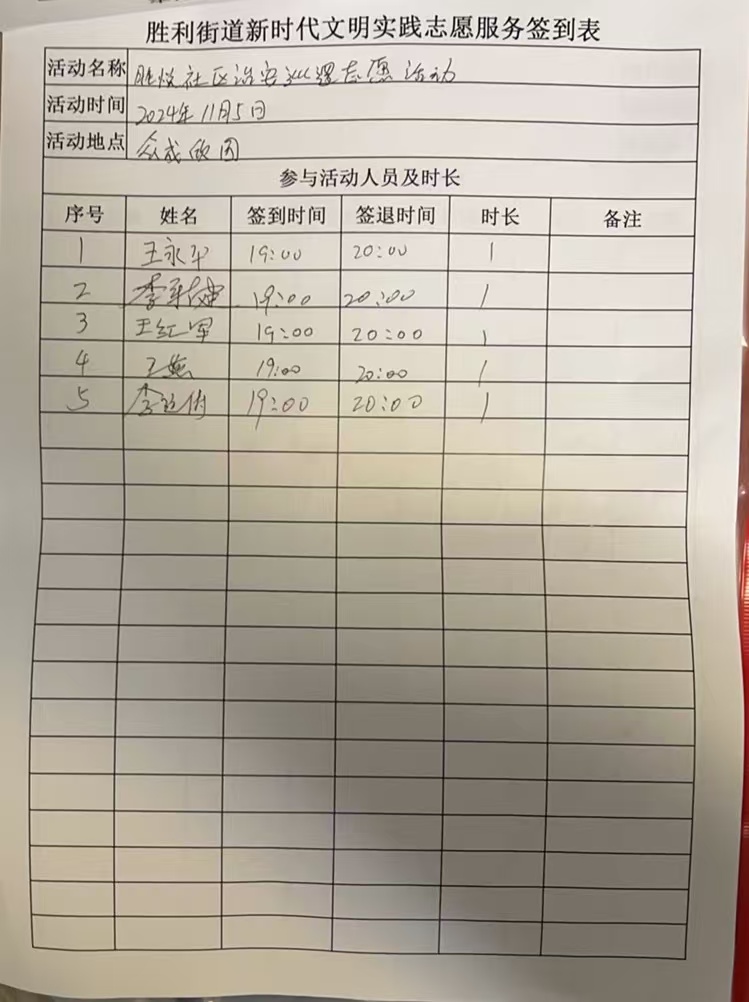 胜利街道新时代文明实践志愿服务签到表
活动名称 胜悦社区治安巡逻志愿活动
活动时间 2024年11月5日
活动地点 众成
参与活动人员及时长
序号 姓名 签到时间 签退时间 时长 备注
1 王永平 19:00 20:00 1
2 李 19:00 20:00 1
3 王红军 19:00 20:00 1
4 王燕 19:00 20:00 1
5 李 19:00 20:00 1